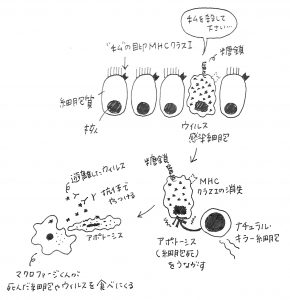 私を殺して
下さい…
"私"の目印MHCクラスI
糖鎖
細胞質
核
ウイルス
感染細胞
糖鎖
MHC
クラスIの消失
遊離したウィルス
抗体で
やっつける
アポトーシス
アポトーシス
(細胞死)
をうながす
ナチュラル
キラー細胞
マクロファージくんが
死んだ細胞やウィルスを食べにくる